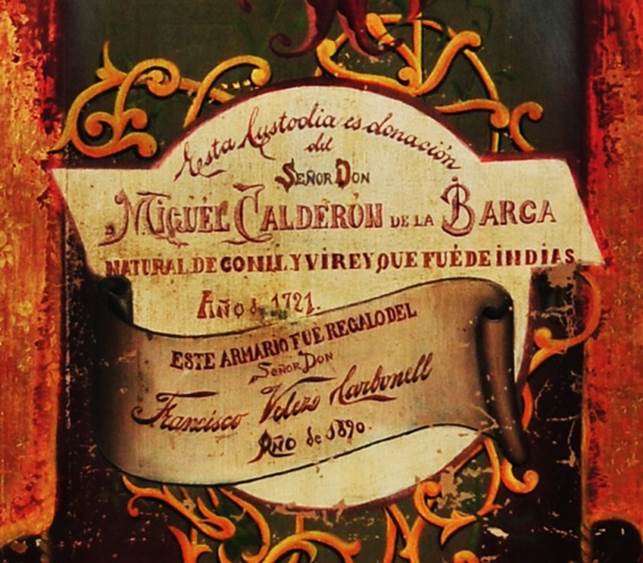 Esta Custodia es donación
del
SEÑOR DON
MIGUEL CALDERÓN DE LA BARCA
NATURAL DE CONIL.Y VIREY QUE FUÉ DE INDIAS
AÑO de 1721.
ESTE ARMARIO FUE REGALO DEL
SEÑOR DON
Francisco Velezo Carbonell
AÑO de 1890.